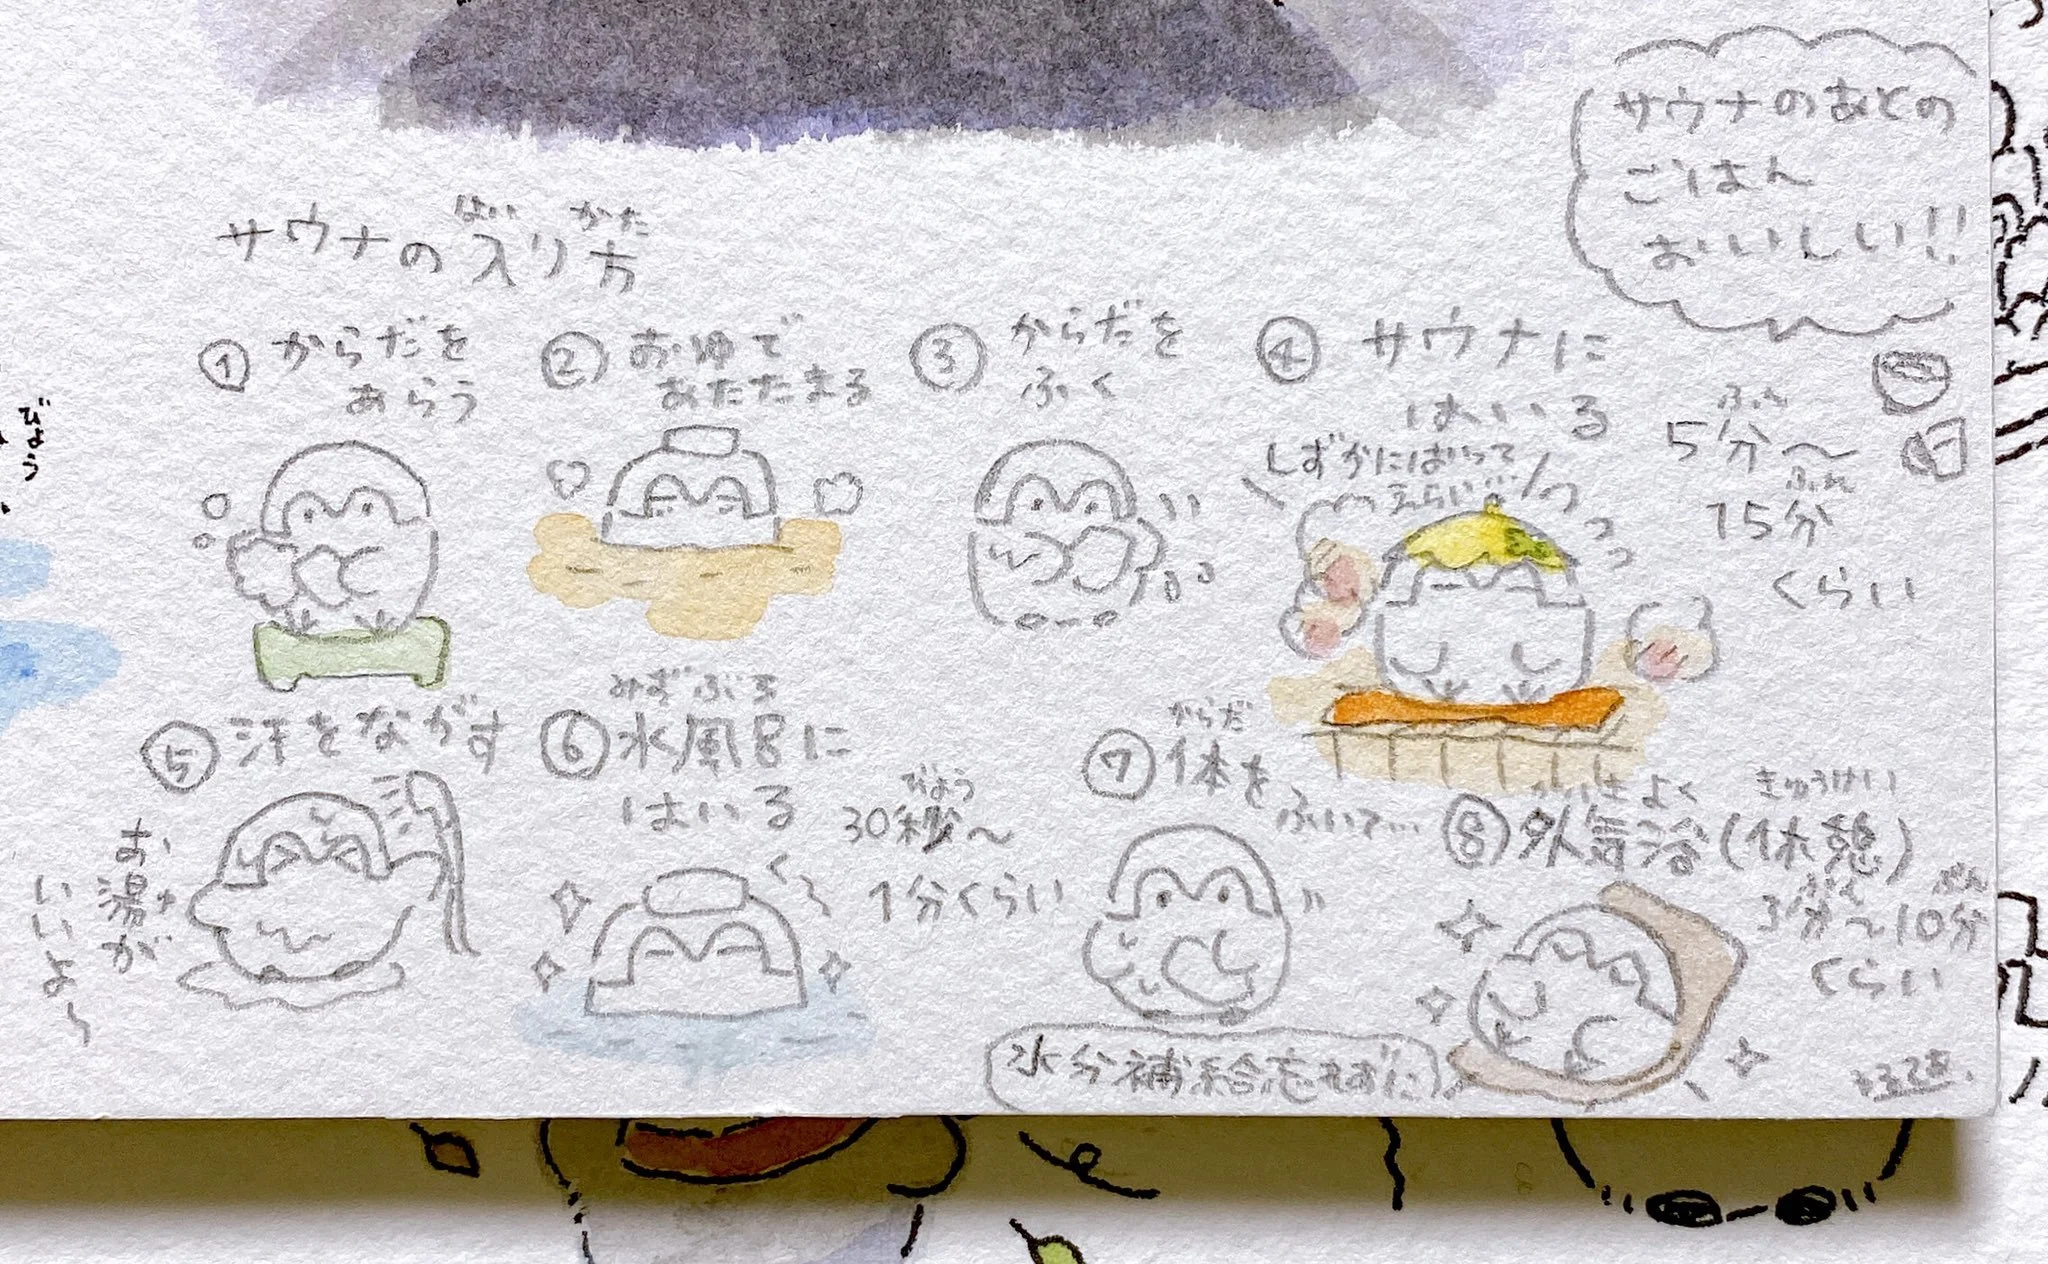 サウナのあとの
ごはん
おいしい!!
はい かた
サウナの入り方
① からだを
あらう
② おゆで
あたたまる
③ からだを
ふく
④ サウナに
はいる
しずかにはいって
えらい…
ぷん
5分〜
ふん
15分
くらい
びょう
⑤ 汗をながす
お湯が
ゆ
いいよ〜
みずぶろ
⑥ 水風呂に
はいる
びょう
30秒〜
1分くらい
からだ
⑦ 体を
ふいて…
水分補給忘れずに
がいきよく きゅうけい
⑧ 外気浴(休憩)
ぷん ぷん
3分〜10分
くらい